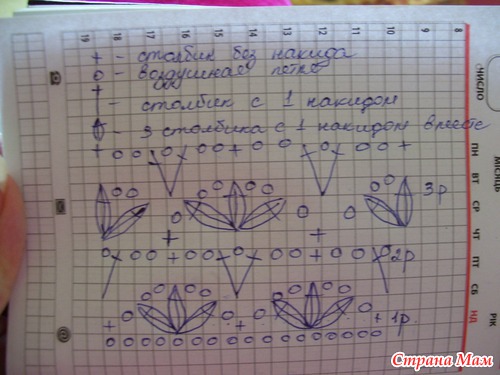 + - столбик без накида
o - воздушная петля
- столбик с 1 накидом
- 3 столбика с 1 накидом вместе
3р
2р
1р
19 18 17 16 15 14 13 12 11 10 9 8
ЧИСЛО
МІСЯЦЬ
РІК
ПН ВТ СР ЧТ ПТ СБ НД
Страна Мам